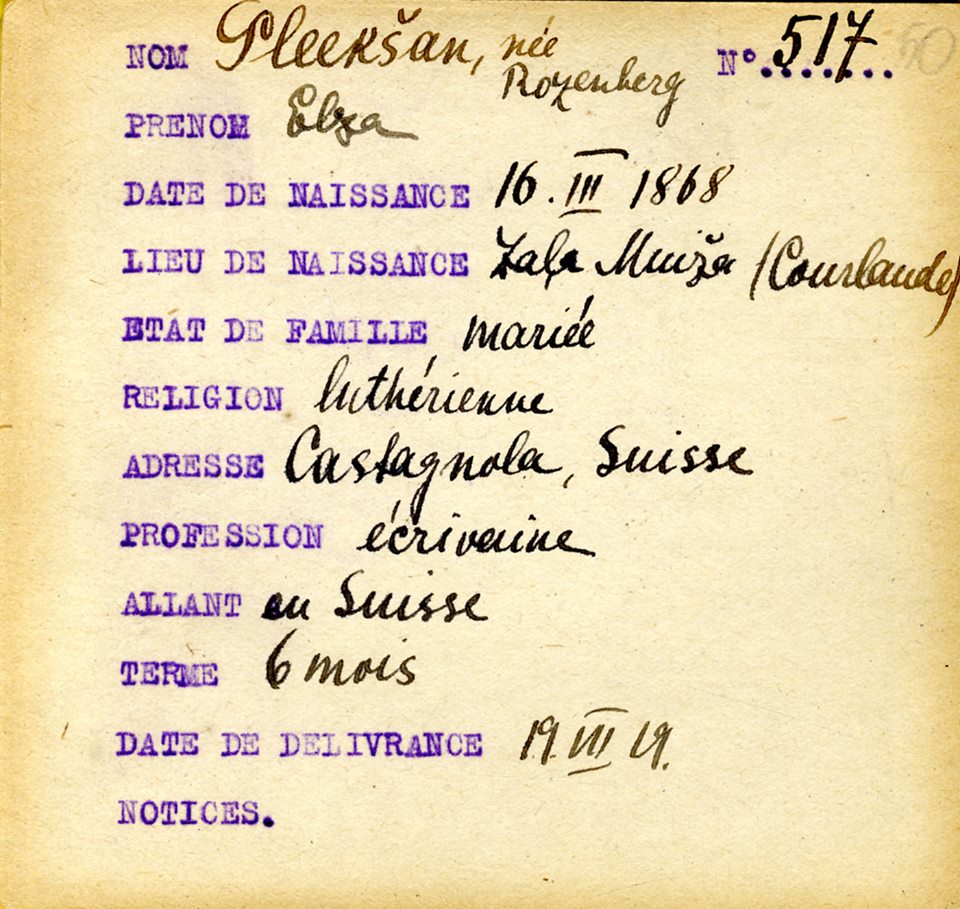 NOM Pleekšan, née N°. 517 50
Rozenberg
PRENOM Elza
DATE DE NAISSANCE 16. III 1868
LIEU DE NAISSANCE Zaļa Muiža (Courlande)
ETAT DE FAMILLE mariée
RELIGION luthérienne
ADRESSE Castagnola, Suisse
PROFESSION écrivaine
ALLANT en Suisse
TERME 6 mois
DATE DE DELIVRANCE 19 VIII 19.
NOTICES.